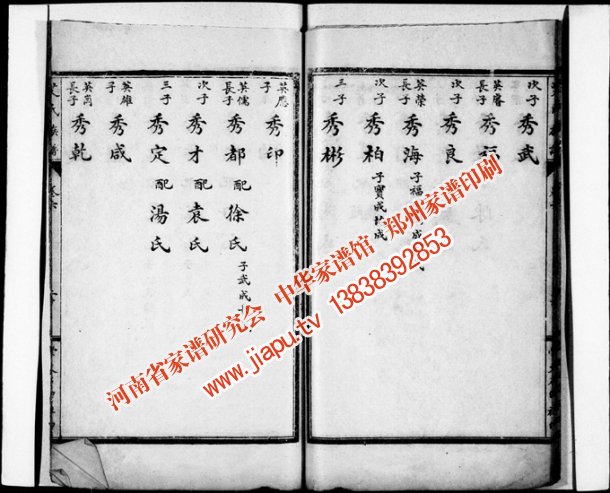 次子 秀武
英睿長子 秀
次子 秀良
英榮長子 秀海 子福 成
次子 秀柏 子寶成 成
三子 秀彬
英應子 秀印
英儒長子 秀都 配徐氏 子武成
次子 秀才 配袁氏
三子 秀定 配湯氏
英雄子 秀咸
英崗長子 秀乾
河南省家谱研究会 中华家谱馆 郑州家谱印刷
www.jiapu.tv 13838392853